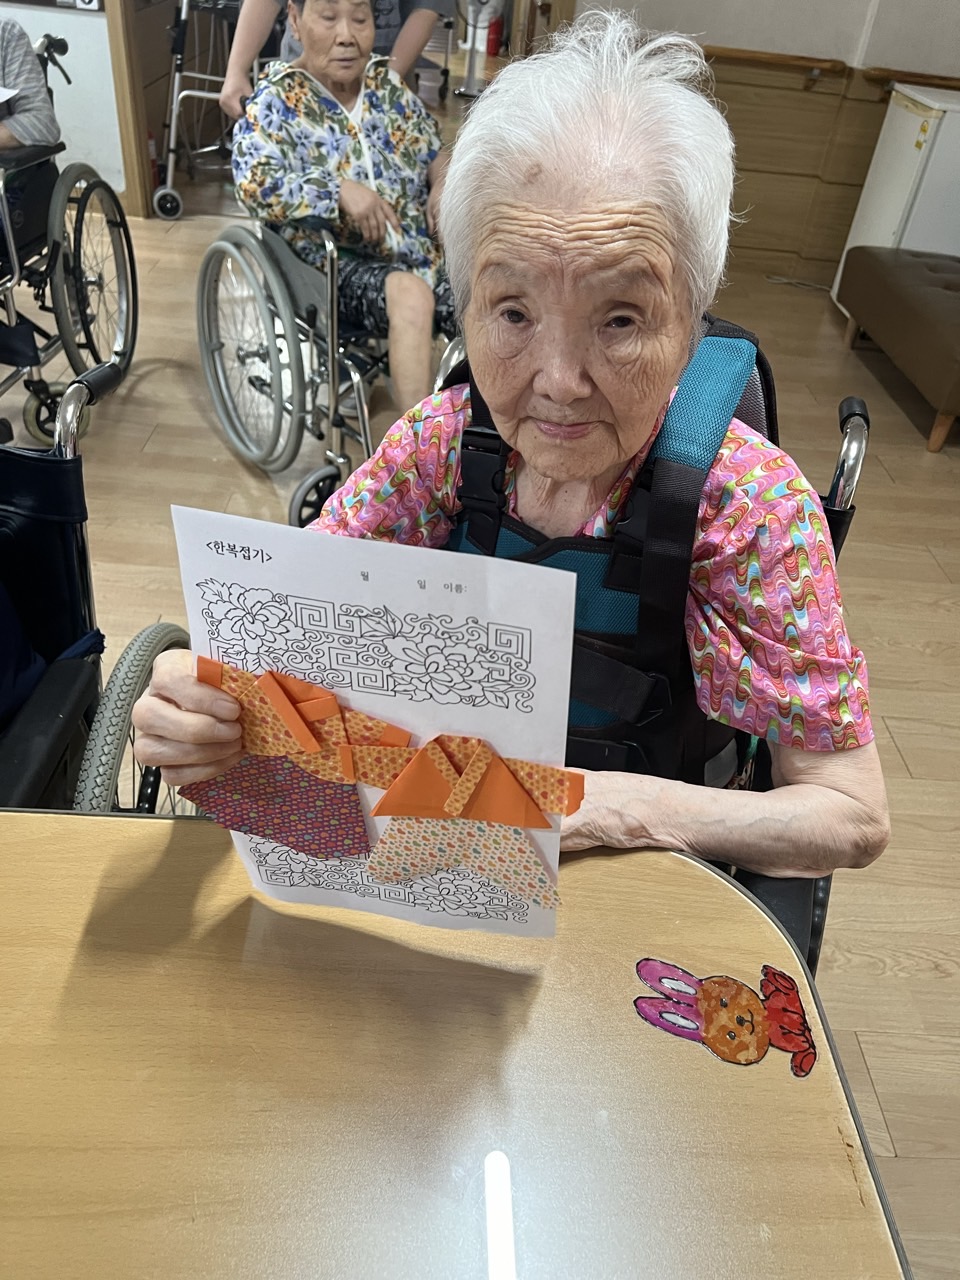 <한복접기>
월 일 이름: